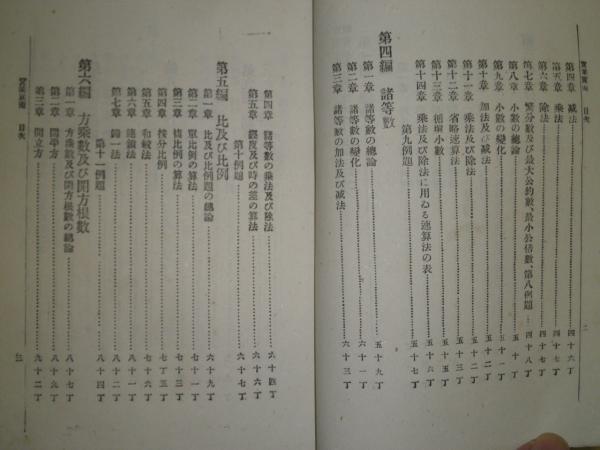 實業算術 目次
第四章 減法……四十六丁
第五章 乘法……四十七丁
第六章 除法……四十七丁
第七章 繁分數及び最大公約數、最小公倍數、第八例題…四十八丁
第八章 小數の總論……五十丁
第九章 小數の變化……五十一丁
第十章 加法及び減法……五十二丁
第十一章 乘法及び除法……五十二丁
第十二章 省略速算法……五十三丁
第十三章 循環小數……五十五丁
第十四章 乘法及び除法に用ゐる速算法の表……五十六丁
第九例題……五十七丁
第四編 諸等數
第一章 諸等數の總論……五十九丁
第二章 諸等數の變化……六十一丁
第三章 諸等數の加法及び減法……六十三丁
二
第四章 諸等數の乘法及び除法……六十四丁
第五章 經度及び時の差の算法……六十六丁
第十例題……六十七丁
第五編 比及び比例
第一章 比及び比例題の總論……六十九丁
第二章 單比例の算法……七十一丁
第三章 複比例の算法……七十三丁
第四章 按分比例……七十五丁
第五章 和較法……七十六丁
第六章 連鎖法……八十一丁
第七章 歸一法……八十二丁
第十一例題……八十四丁
第六編 方乘數及び開方根數
第一章 方乘數及び開方根數の總論……八十七丁
第二章 開平方……八十九丁
第三章 開立方……九十二丁
目次
三